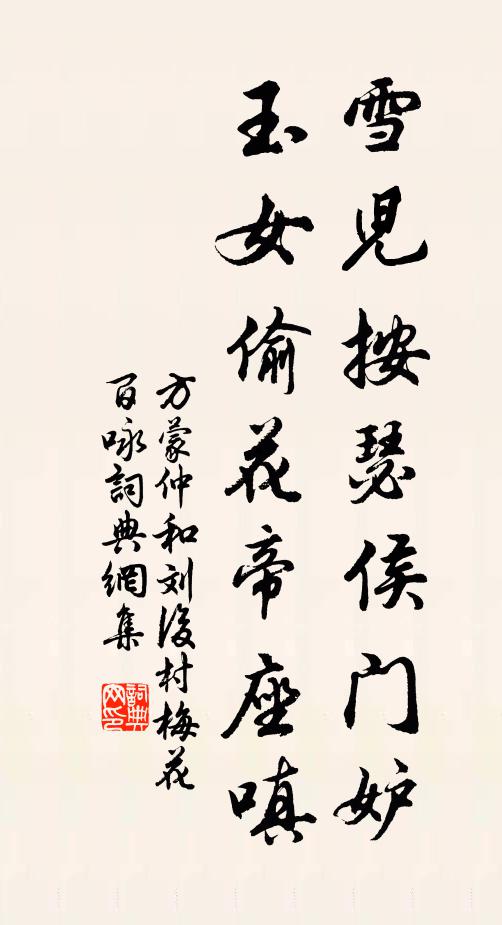 雪児按瑟侯门妒
玉女偷花帝座嗔
方蒙仲和刘後村梅花
百咏詞典網集
詞典网印